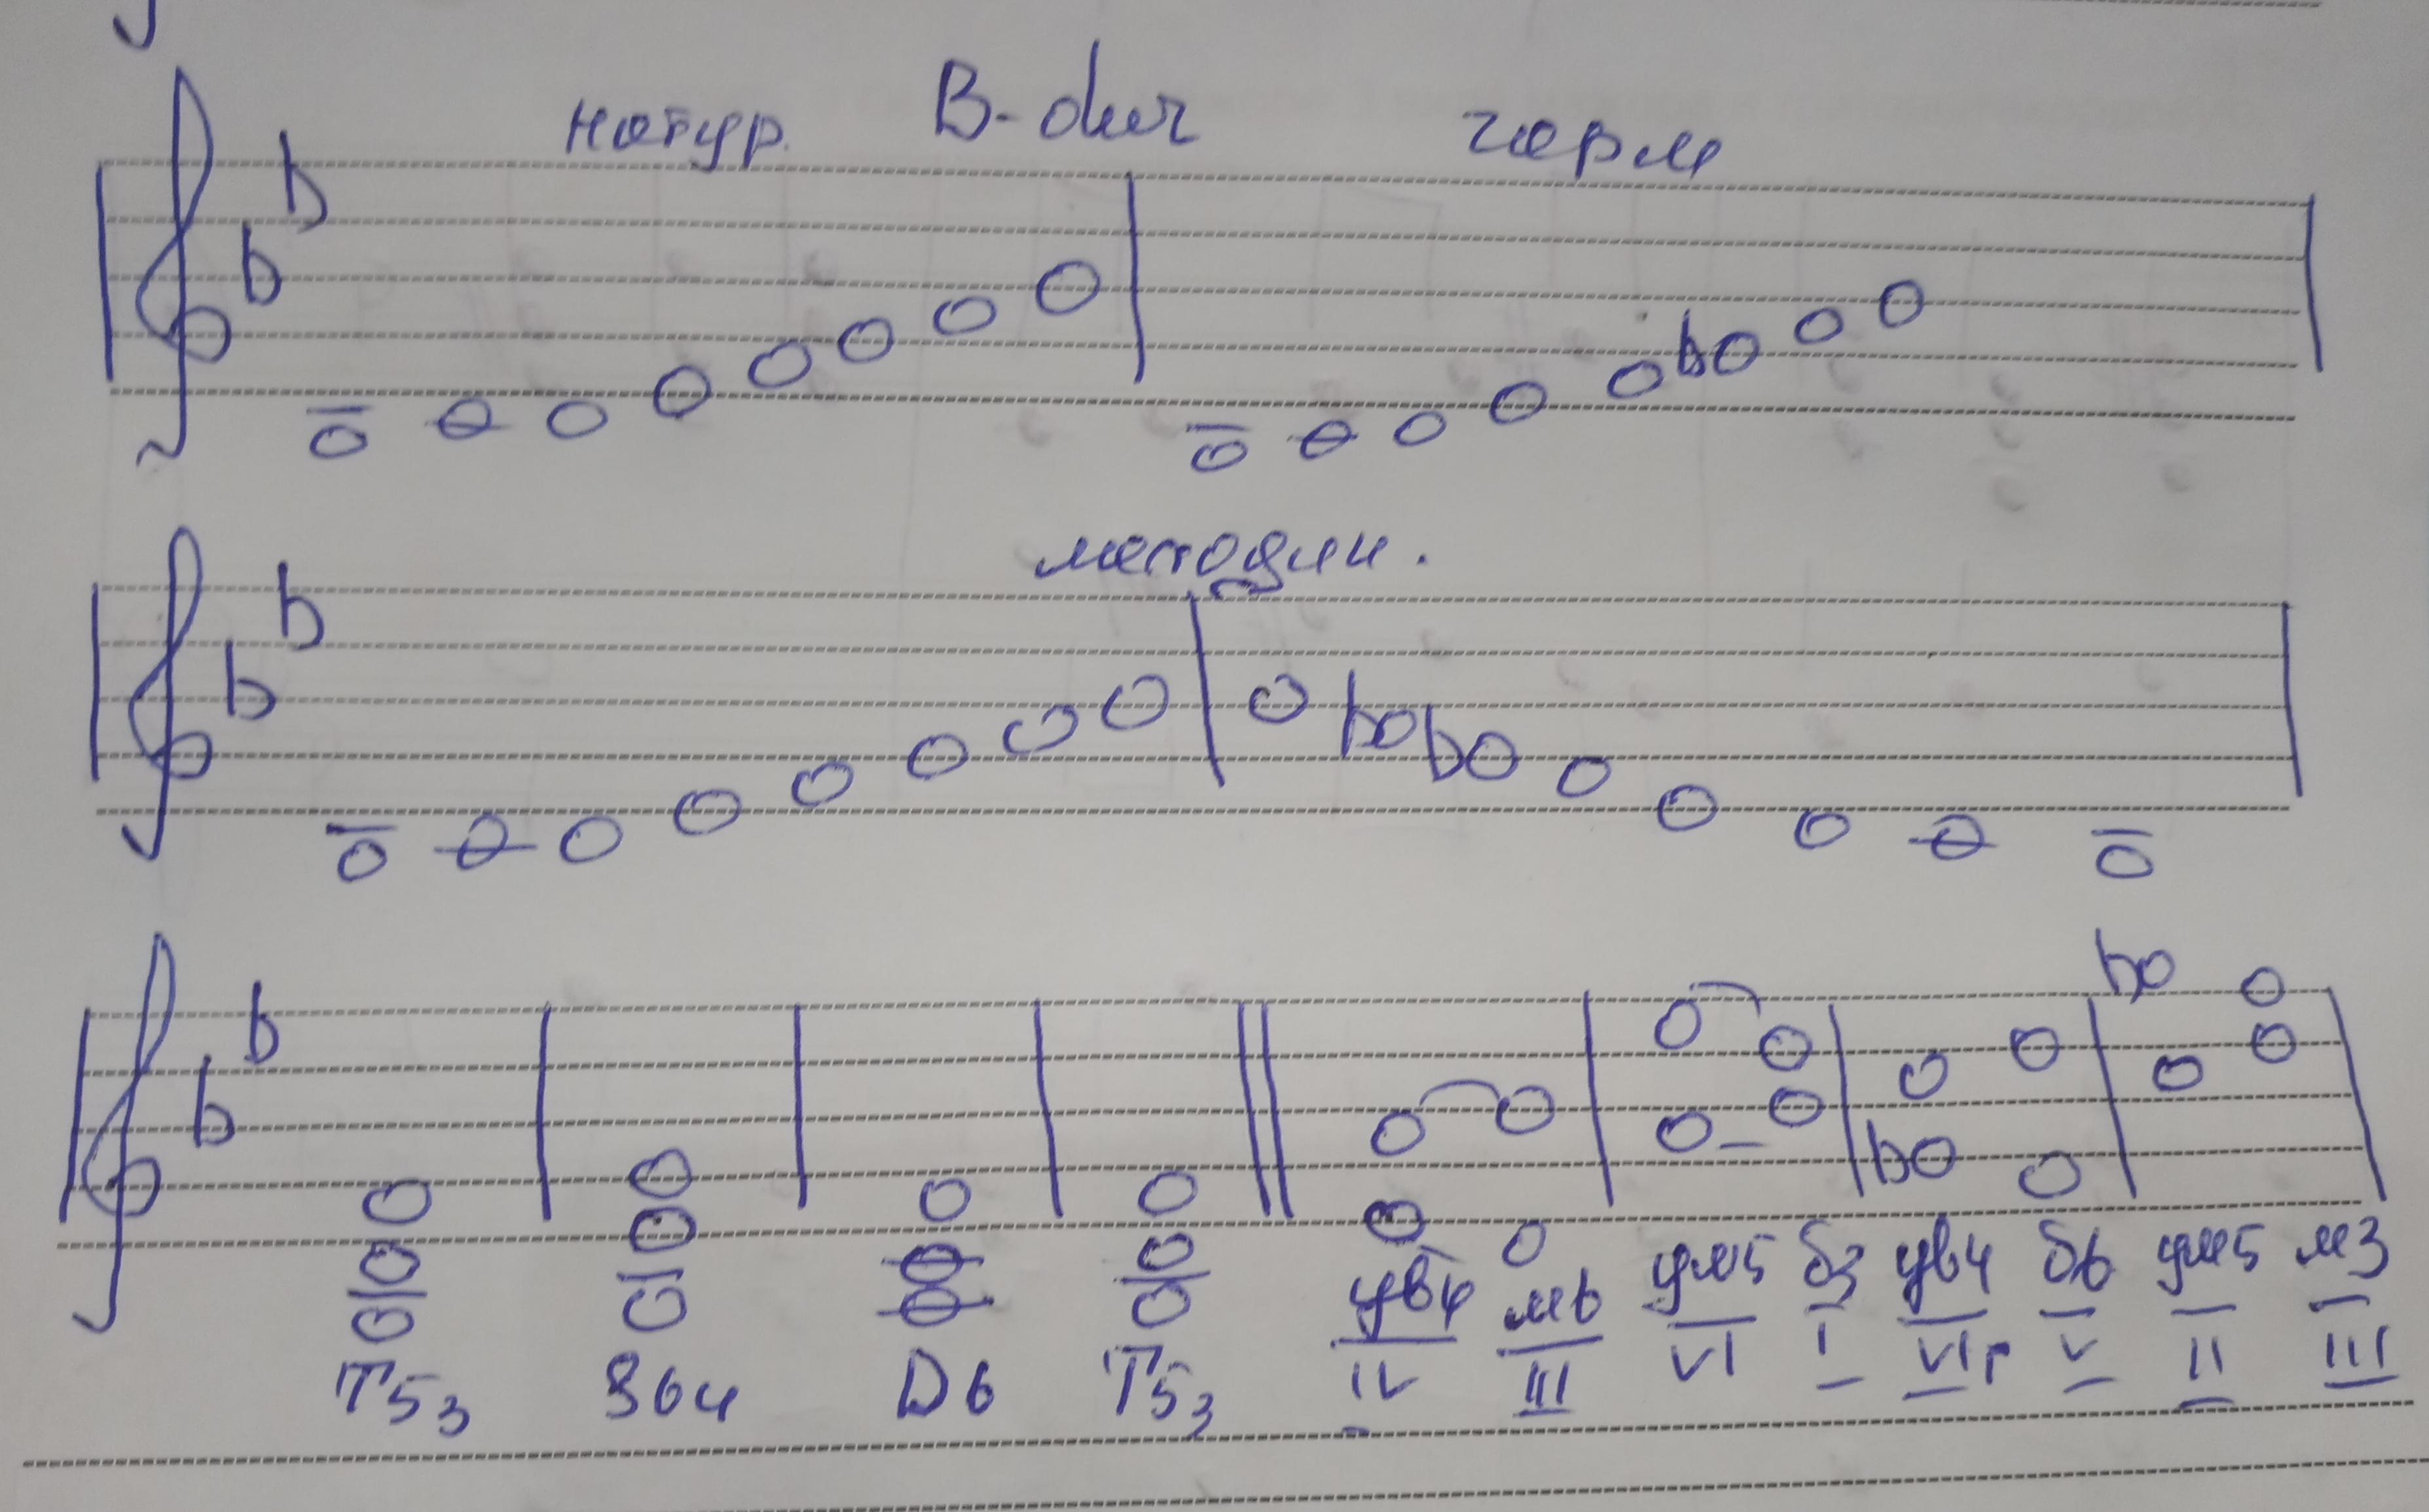 натур. B-dur гарм
мелодич.
T53 S64 D6 T53 ув4 м6 ум5 б3 ув4 б6 ум5 м3
IV III VI I VIг V II III